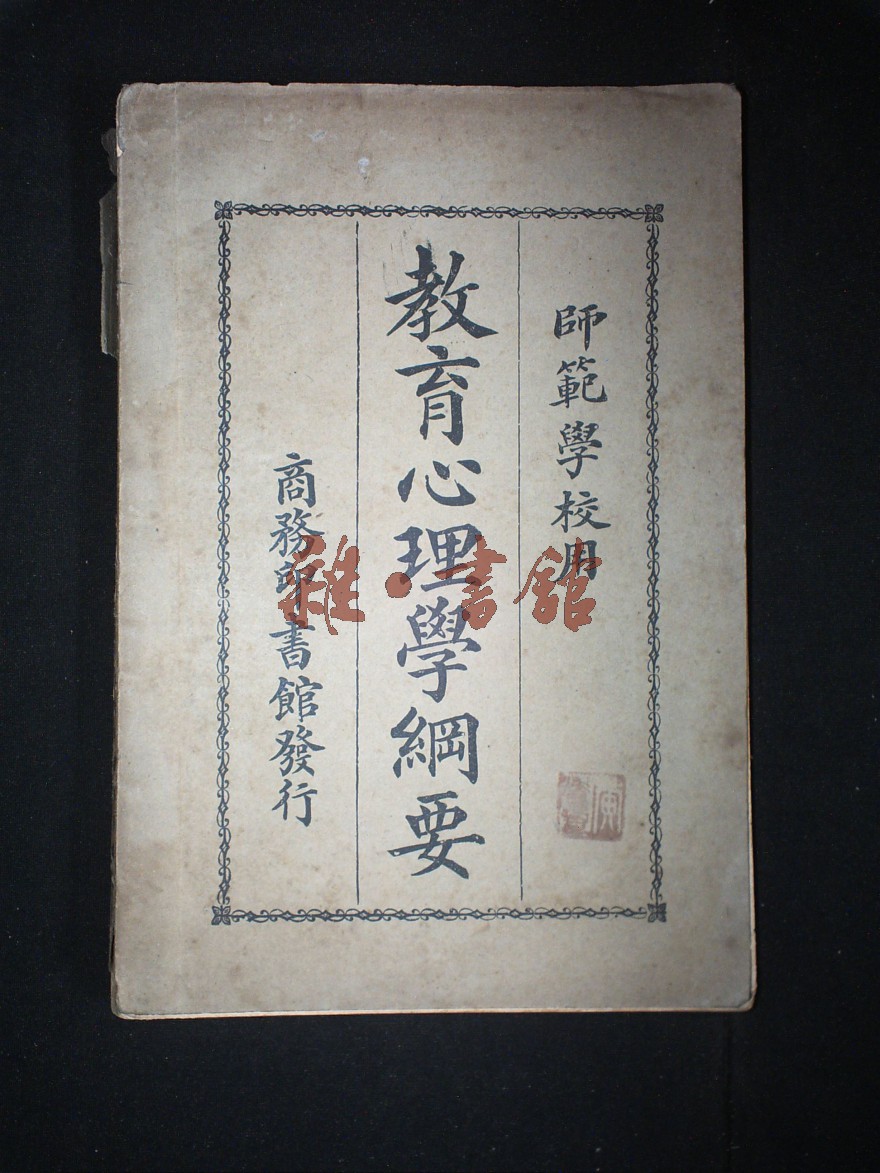 師範學校用
教育心理學綱要
商務印書館發行
雜·書館